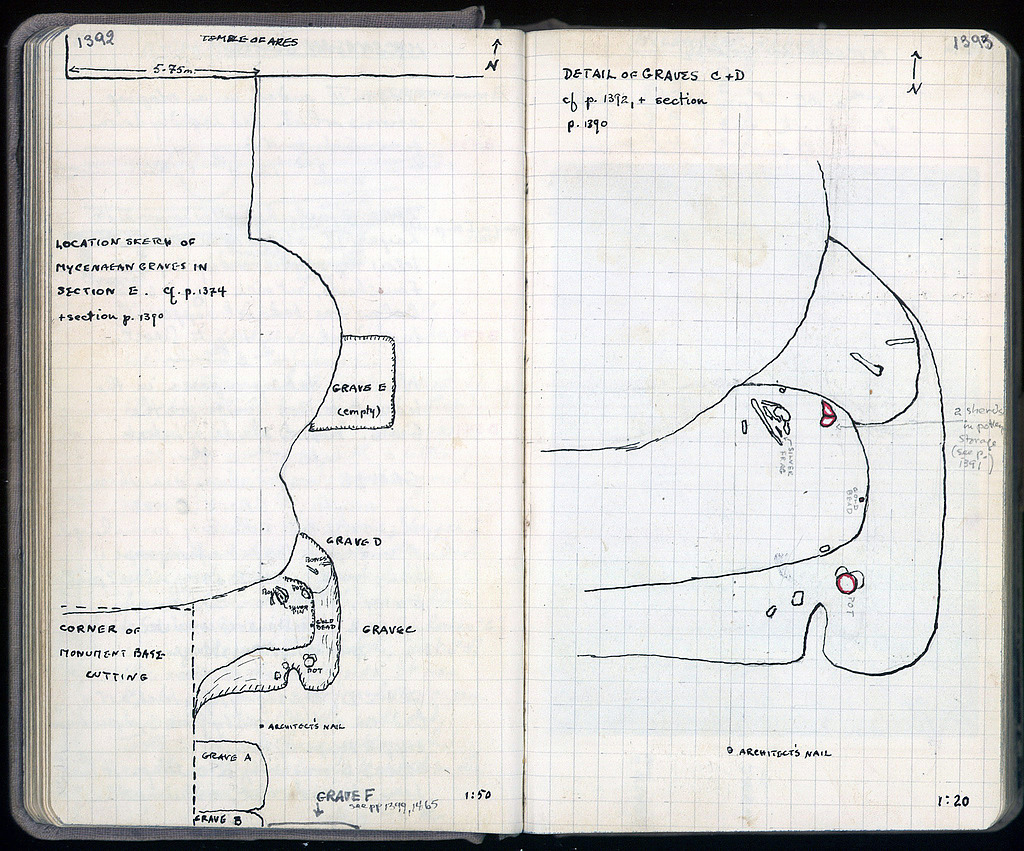 1392
TEMBLE OF ARES
N
5.75m
LOCATION SKETCH OF
MYCENAEAN GRAVES IN
SECTION E. cf. p. 1374
+ section p. 1390
GRAVE E
(empty)
GRAVE D
BONES
POT
SILVER
PIN
GOLD
BEAD
GRAVE C
POT
CORNER OF
MONUMENT BASE
CUTTING
ARCHITECT'S NAIL
GRAVE A
GRAVE B
GRAVE F
see pp 1399, 1465
1:50
1393
N
DETAIL OF GRAVES C + D
cf p. 1392, + section
p. 1390
2 sherds
in pottery
storage
(see p.
1391)
SILVER
FRAG
GOLD
BEAD
POT
ARCHITECT'S NAIL
1:20